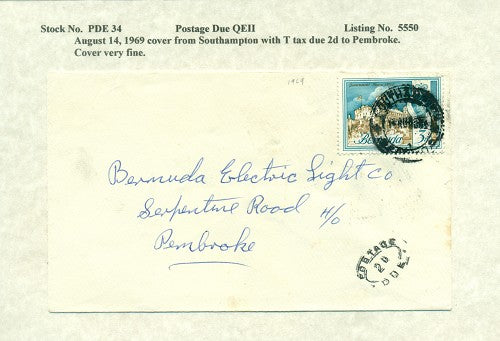 Stock No. PDE 34 Postage Due QEII Listing No. 5550
August 14, 1969 cover from Southampton with T tax due 2d to Pembroke.
Cover very fine.
1969
Bermuda
Bermuda Electric Light Co.
Serpentine Road H/O
Pembroke
POSTAGE
2D
DUE